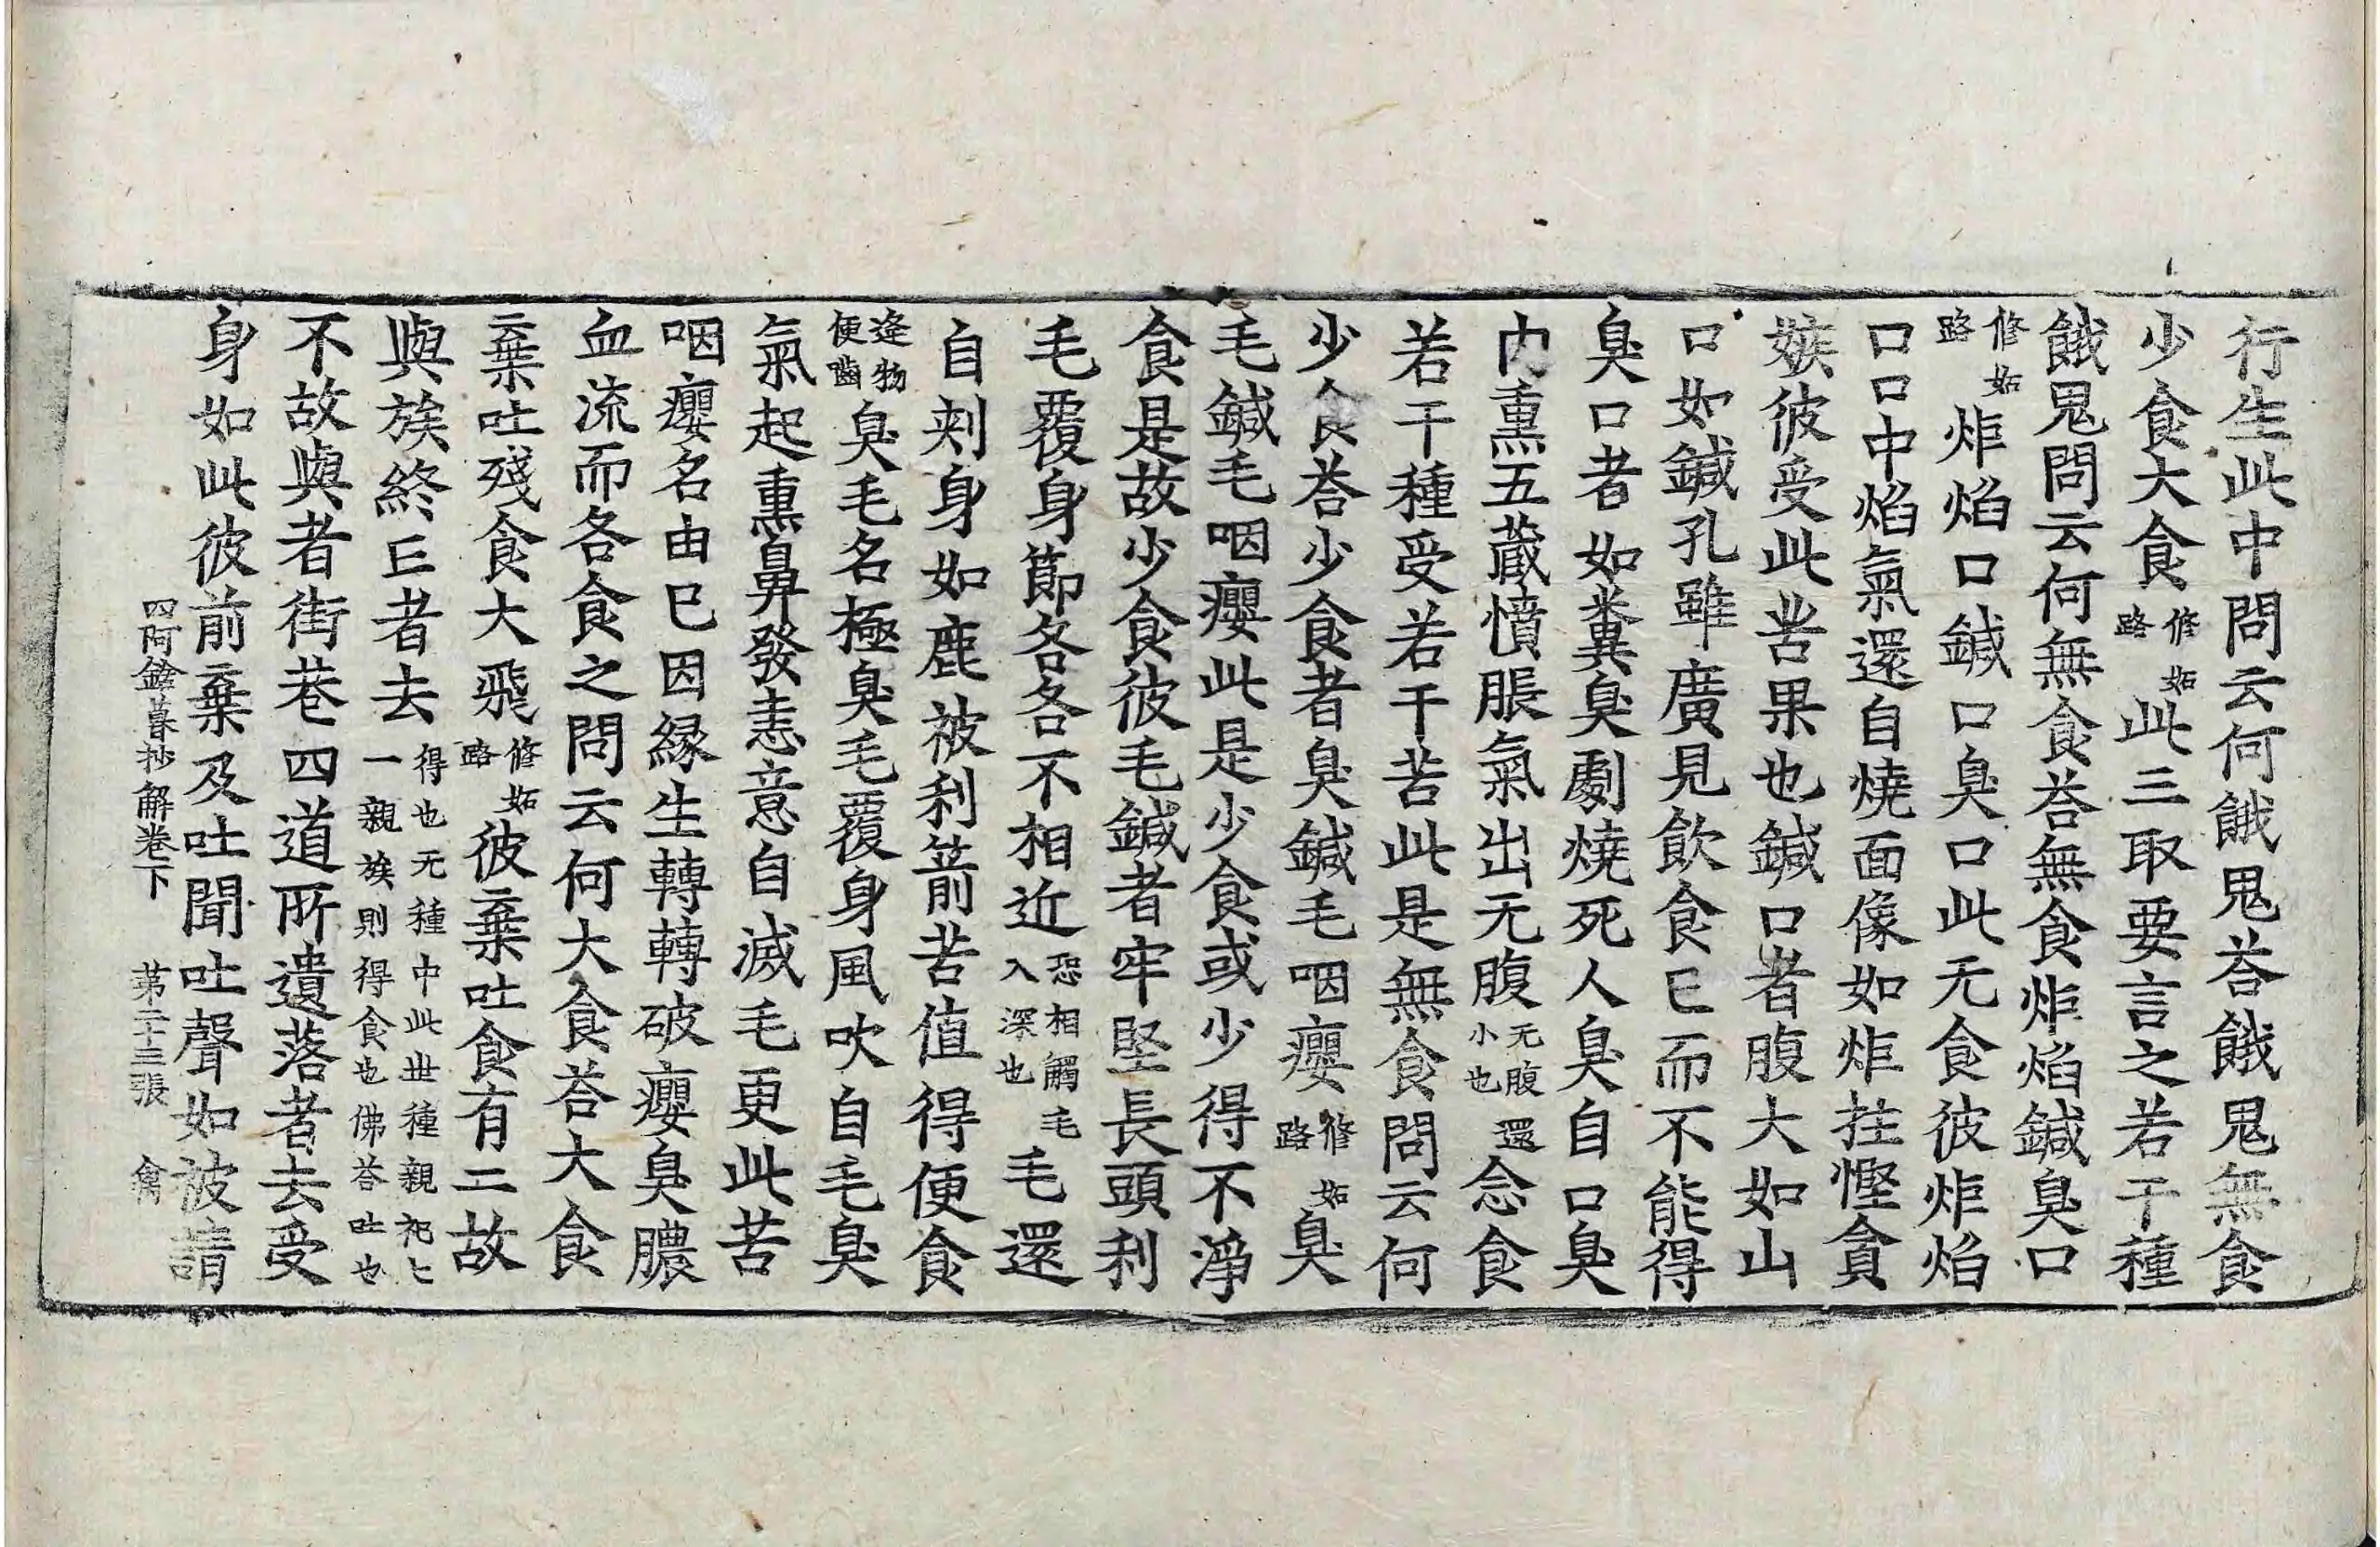 行生此中問云何餓鬼荅餓鬼無食
少食大食修妬路此三取要言之若干種
餓鬼問云何無食荅無食炬焰鍼臭口
修妬路炬焰口鍼口臭口此无食彼炬焰
口口中焰氣還自燒面像如炬拄慳貪
嫉彼受此苦果也鍼口者腹大如山
口如鍼孔雖廣見飲食已而不能得
臭口者如糞臭劇燒死人臭自口臭
内熏五藏憤脹氣出无腹无腹小也還念食
若干種受若干苦此是無食問云何
少食荅少食者臭鍼毛咽癭修妬路臭
毛鍼毛咽癭此是少食或少得不淨
食是故少食彼毛鍼者牢堅長頭利
毛覆身節各各不相近恐相觸毛入深也毛還
自刾身如鹿被利箭苦值得便食
逢物便齒臭毛名極臭毛覆身風吹自毛臭
氣起熏鼻發恚意自滅毛更此苦
咽癭名由已因緣生轉轉破癭臭膿
血流而各食之問云何大食荅大食
棄吐殘食大飛修妬路彼棄吐食有二故
與族終亡者去得也无種中此世種親祀七一親族則得食也佛荅吐也
不故與者街巷四道所遺落者去受
身如此彼前棄及吐聞吐聲如被請
四阿鋡暮抄解卷下 第二十三張 禽